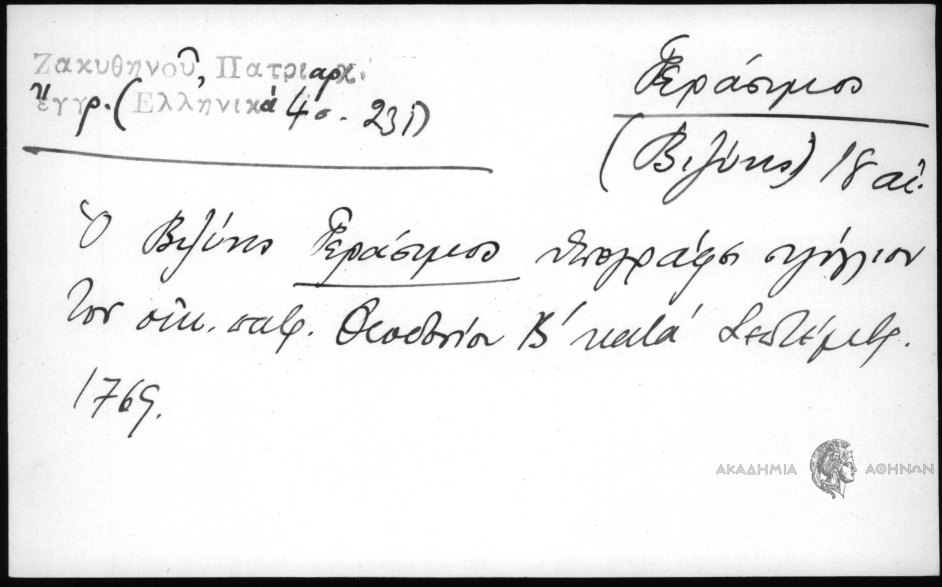 Ζακυθηνοῦ, Πατριαρχ.
ἔγγρ. (Ἑλληνικά 4 σ. 231)
Γεράσιμος
(Βιζύης) 18 αἰ.
Ὁ Βιζύης Γεράσιμος ὑπογράφει σιγίλλιον
τοῦ οἰκ. πατρ. Θεοδοσίου Β΄ κατά Σεπτέμβρ.
1769.
ΑΚΑΔΗΜΙΑ ΑΘΗΝΩΝ